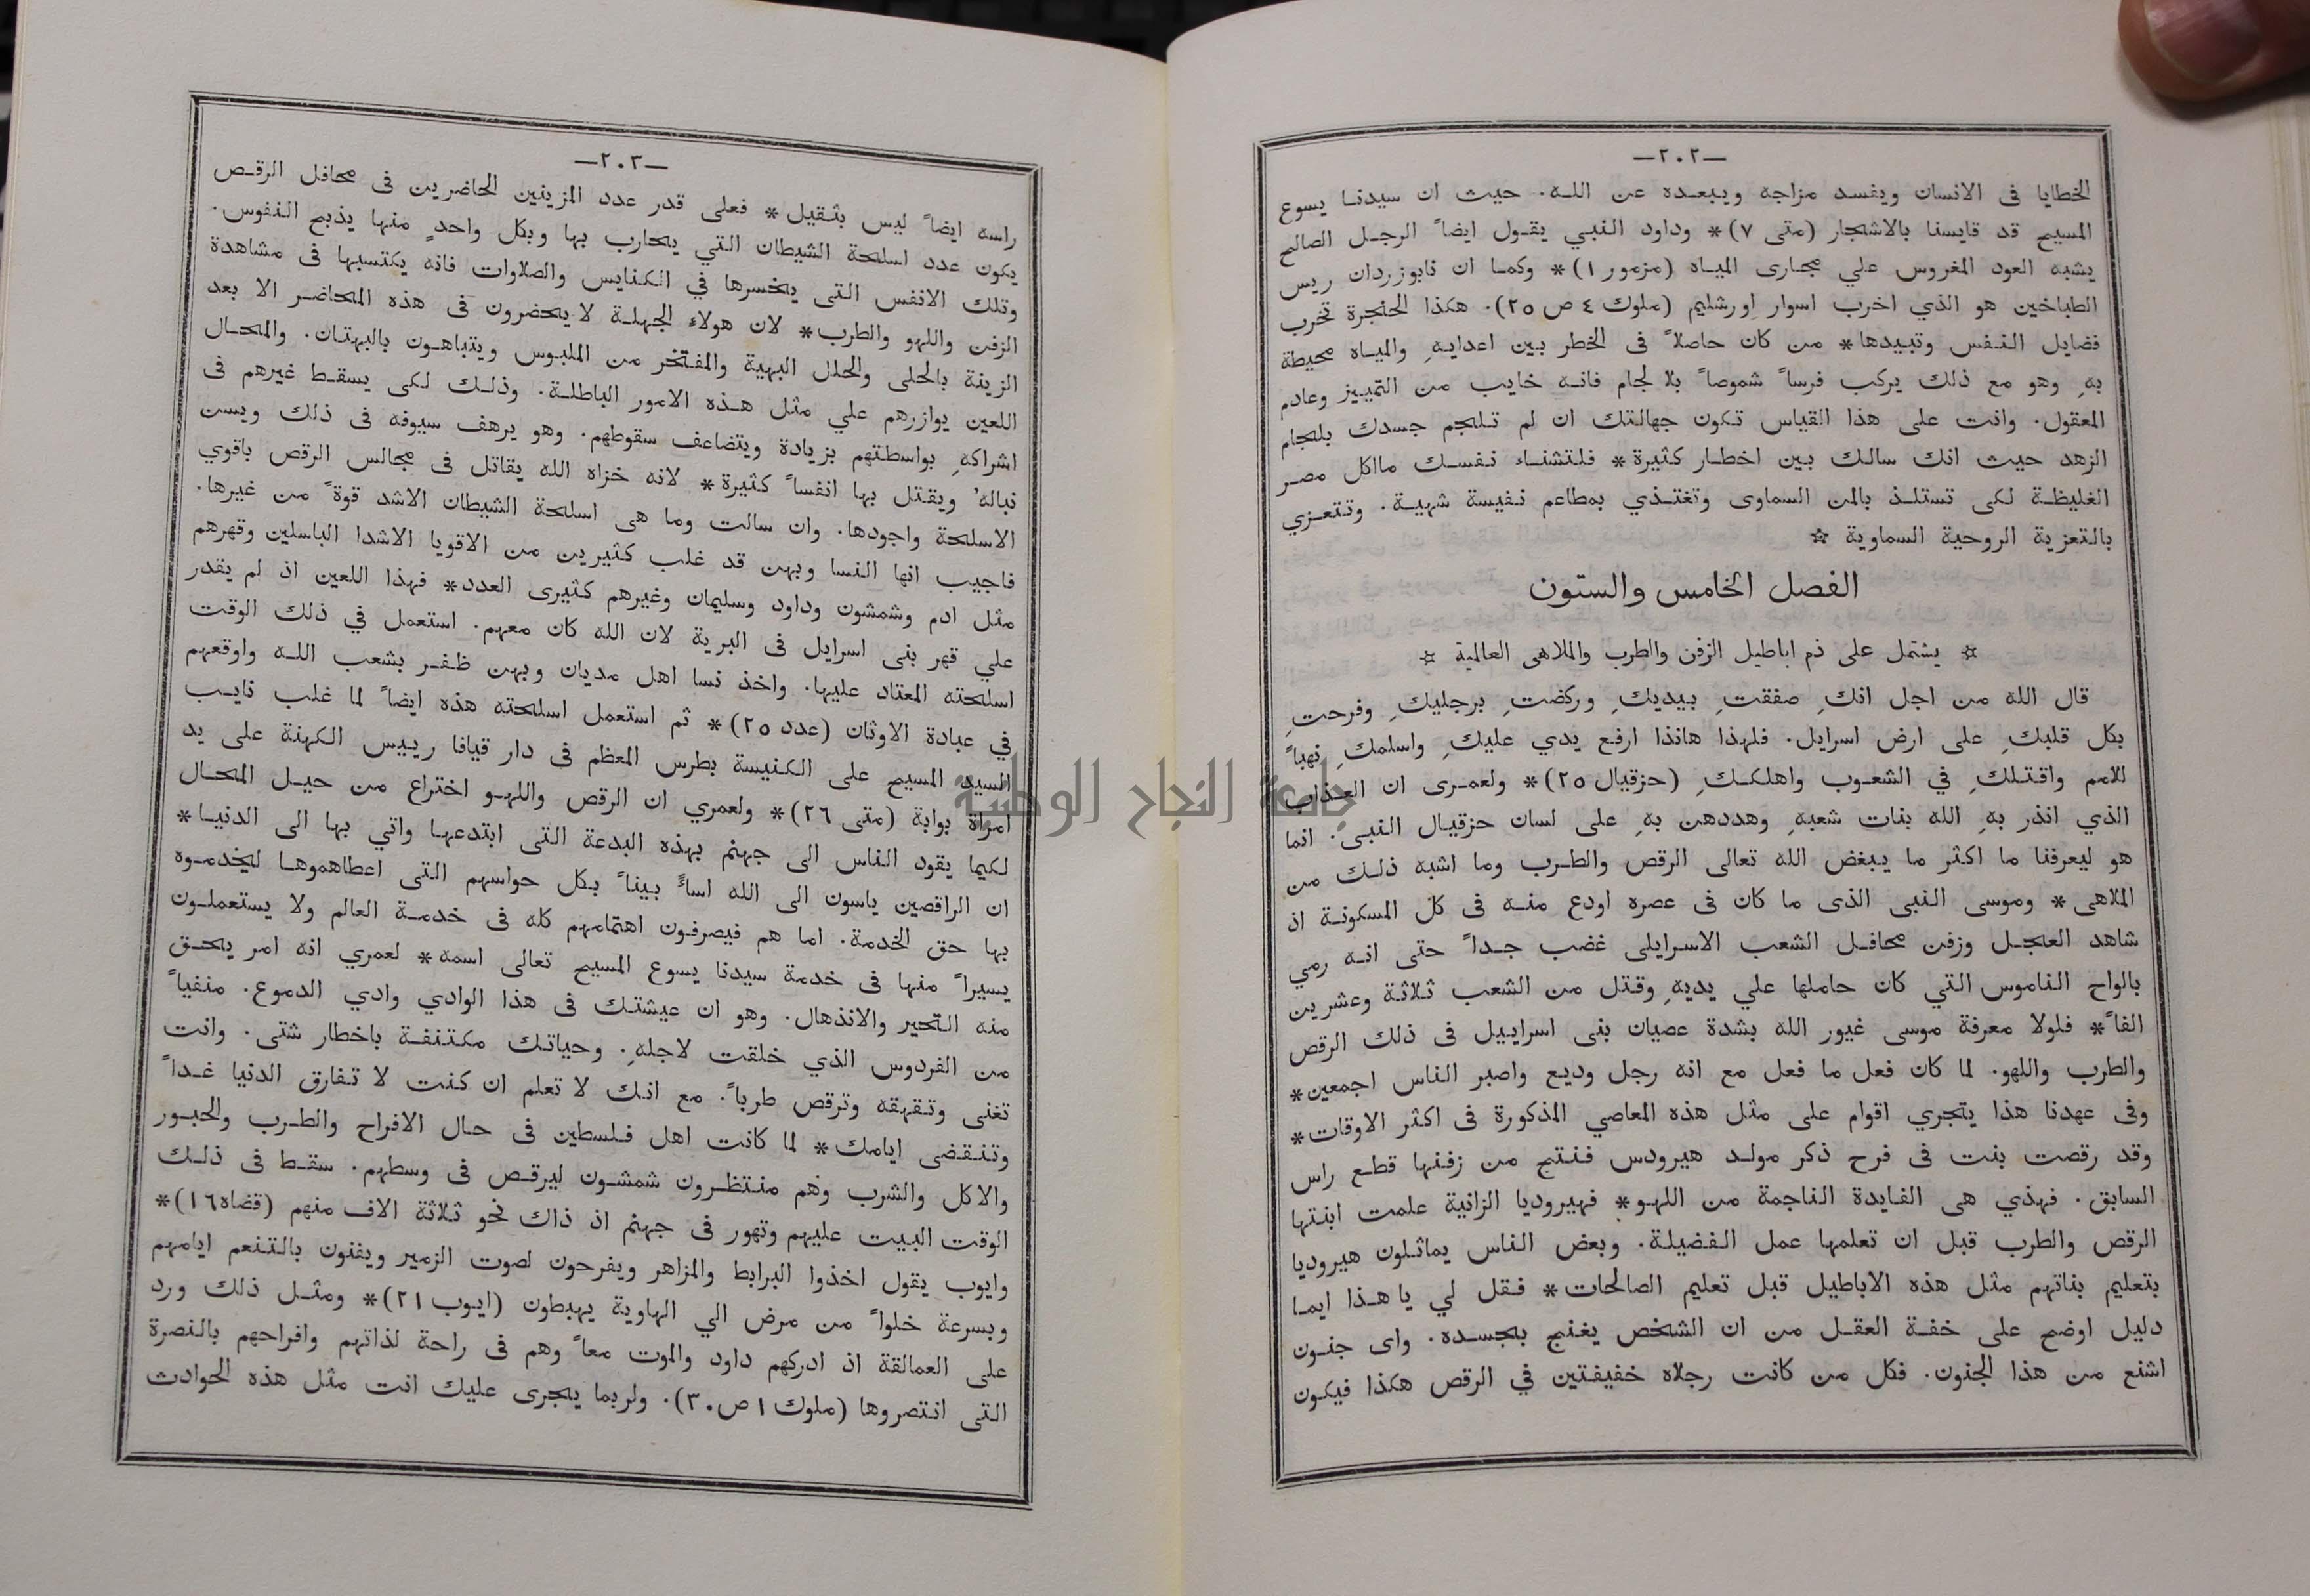 —٢٠٢—
الخطايا فى الانسان ويفسد مزاجه ويبعده عن الله. حيث ان سيدنا يسوع
المسيح قد قايسنا بالاشجار (متى ٧)* وداود النبي يقول ايضاً الرجل الصالح
يشبه العود المغروس علي مجارى المياه (مزمور ١)* وكما ان نابوزردان ريس
الطباخين هو الذي اخرب اسوار اورشليم (ملوك ٤ ص ٢٥). هكذا الحنجرة تخرب
فضايل النفس وتبيدها* من كان حاصلاً فى الخطر بين اعدايهِ والمياه محيطة
بهِ وهو مع ذلك يركب فرساً شموصاً بلا لجام فانه خايب من التمييز وعادم
المعقول. وانت على هذا القياس تكون جهالتك ان لم تلجم جسدك بلجام
الزهد حيث انك سالك بين اخطار كثيرة* فلتشناء نفسك مااكل مصر
الغليظة لكى تستلذ بالمن السماوى وتغتذي بمطاعم نفيسة شهية. وتتعزي
بالتعزية الروحية السماوية ☆
الفصل الخامس والستون
☆ يشتمل على ذم اباطيل الزفن والطرب والملاهى العالمية ☆
قال الله من اجل انكِ صفقتِ بيديكِ وركضتِ برجليكِ وفرحتِ
بكل قلبكِ على ارض اسرايل. فلهذا هانذا ارفع يدي عليكِ واسلمكِ نهباً
للامم واقتلكِ في الشعوب واهلككِ (حزقيال ٢٥)* ولعمرى ان العذاب
الذي انذر بهِ الله بنات شعبهِ وهددهن بهِ على لسان حزقيال النبى. انما
هو ليعرفنا ما اكثر ما يبغض الله تعالى الرقص والطرب وما اشبه ذلك من
الملاهى* وموسى النبى الذى ما كان فى عصره اودع منه فى كل المسكونة اذ
شاهد العجل وزفن محافل الشعب الاسرايلى غضب جداً حتى انه رمي
بالواح الناموس التي كان حاملها علي يديهِ وقتل من الشعب ثلاثة وعشرين
الفاً* فلولا معرفة موسى غيور الله بشدة عصيان بنى اسراييل فى ذلك الرقص
والطرب واللهو. لما كان فعل ما فعل مع انه رجل وديع واصبر الناس اجمعين*
وفى عهدنا هذا يتجري اقوام على مثل هذه المعاصي المذكورة فى اكثر الاوقات*
وقد رقصت بنت فى فرح ذكر مولد هيرودس فنتج من زفنها قطع راس
السابق. فهذي هى الفايدة الناجمة من اللهو* فهيروديا الزانية علمت ابنتها
الرقص والطرب قبل ان تعلمها عمل الفضيلة. وبعض الناس يماثلون هيروديا
بتعليم بناتهم مثل هذه الاباطيل قبل تعليم الصالحات* فقل لي يا هذا ايما
دليل اوضح على خفة العقل من ان الشخص يغنج بجسده. واى جنون
اشنع من هذا الجنون. فكل من كانت رجلاه خفيفتين في الرقص هكذا فيكون
—٢٠٣—
راسه ايضاً ليس بثقيل* فعلى قدر عدد المزينين الحاضرين فى محافل الرقص
يكون عدد اسلحة الشيطان التي يحارب بها وبكل واحدٍ منها يذبح النفوس.
وتلك الانفس التى يخسرها في الكنايس والصلاوات فانه يكتسبها فى مشاهدة
الزفن واللهو والطرب* لان هولاء الجهلة لا يحضرون فى هذه المحاضر الا بعد
الزينة بالحلى والحلل البهية والمفتخر من الملبوس ويتباهون بالبهتان. والمحال
اللعين يوازرهم علي مثل هذه الامور الباطلة. وذلك لكى يسقط غيرهم فى
اشراكهِ بواسطتهم بزيادة ويتضاعف سقوطهم. وهو يرهف سيوفه فى ذلك ويسن
نباله' ويقتل بها انفساً كثيرة* لانه خزاه الله يقاتل فى مجالس الرقص باقوي
الاسلحة واجودها. وان سالت وما هى اسلحة الشيطان الاشد قوةً من غيرها.
فاجيب انها النسا وبهن قد غلب كثيرين من الاقويا الاشدا الباسلين وقهرهم
مثل ادم وشمشون وداود وسليمان وغيرهم كثيرى العدد* فهذا اللعين اذ لم يقدر
علي قهر بنى اسرايل فى البرية لان الله كان معهم. استعمل في ذلك الوقت
اسلحته المعتاد عليها. واخذ نسا اهل مديان وبهن ظفر بشعب الله واوقعهم
في عبادة الاوثان (عدد ٢٥)* ثم استعمل اسلحته هذه ايضاً لما غلب نايب
السيد المسيح على الكنيسة بطرس المعظم فى دار قيافا رييس الكهنة على يد
امراة بوابة (متى ٢٦)* ولعمري ان الرقص واللهو اختراع من حيل المحال
لكيما يقود الناس الى جهنم بهذه البدعة التى ابتدعها واتي بها الى الدنيا*
ان الراقصين ياسون الى الله اساءً بيناً بكل حواسهم التى اعطاهموها ليخدموه
بها حق الخدمة. اما هم فيصرفون اهتمامهم كله فى خدمة العالم ولا يستعملون
يسيراً منها فى خدمة سيدنا يسوع المسيح تعالى اسمه* لعمري انه امر يحق
منه التحير والانذهال. وهو ان عيشتك فى هذا الوادي وادي الدموع. منفياً
من الفردوس الذي خلقت لاجلهِ. وحياتك مكتنفة باخطار شتى. وانت
تغنى وتقهقه وترقص طرباً. مع انك لا تعلم ان كنت لا تفارق الدنيا غداً
وتنقضى ايامك* لما كانت اهل فلسطين فى حال الافراح والطرب والحبور
والاكل والشرب وهم منتظرون شمشون ليرقص فى وسطهم. سقط فى ذلك
الوقت البيت عليهم وتهور فى جهنم اذ ذاك نحو ثلاثة الاف منهم (قضاه ١٦)*
وايوب يقول اخذوا البرابط والمزاهر ويفرحون لصوت الزمير ويفنون بالتنعم ايامهم
وبسرعة خلواً من مرض الي الهاوية يهبطون (ايوب ٢١)* ومثل ذلك ورد
على العمالقة اذ ادركهم داود والموت معاً وهم فى راحة لذاتهم وافراحهم بالنصرة
التى انتصروها (ملوك ١ ص ٣٠). ولربما يجرى عليك انت مثل هذه الحوادث
جامعة النجاح الوطنية